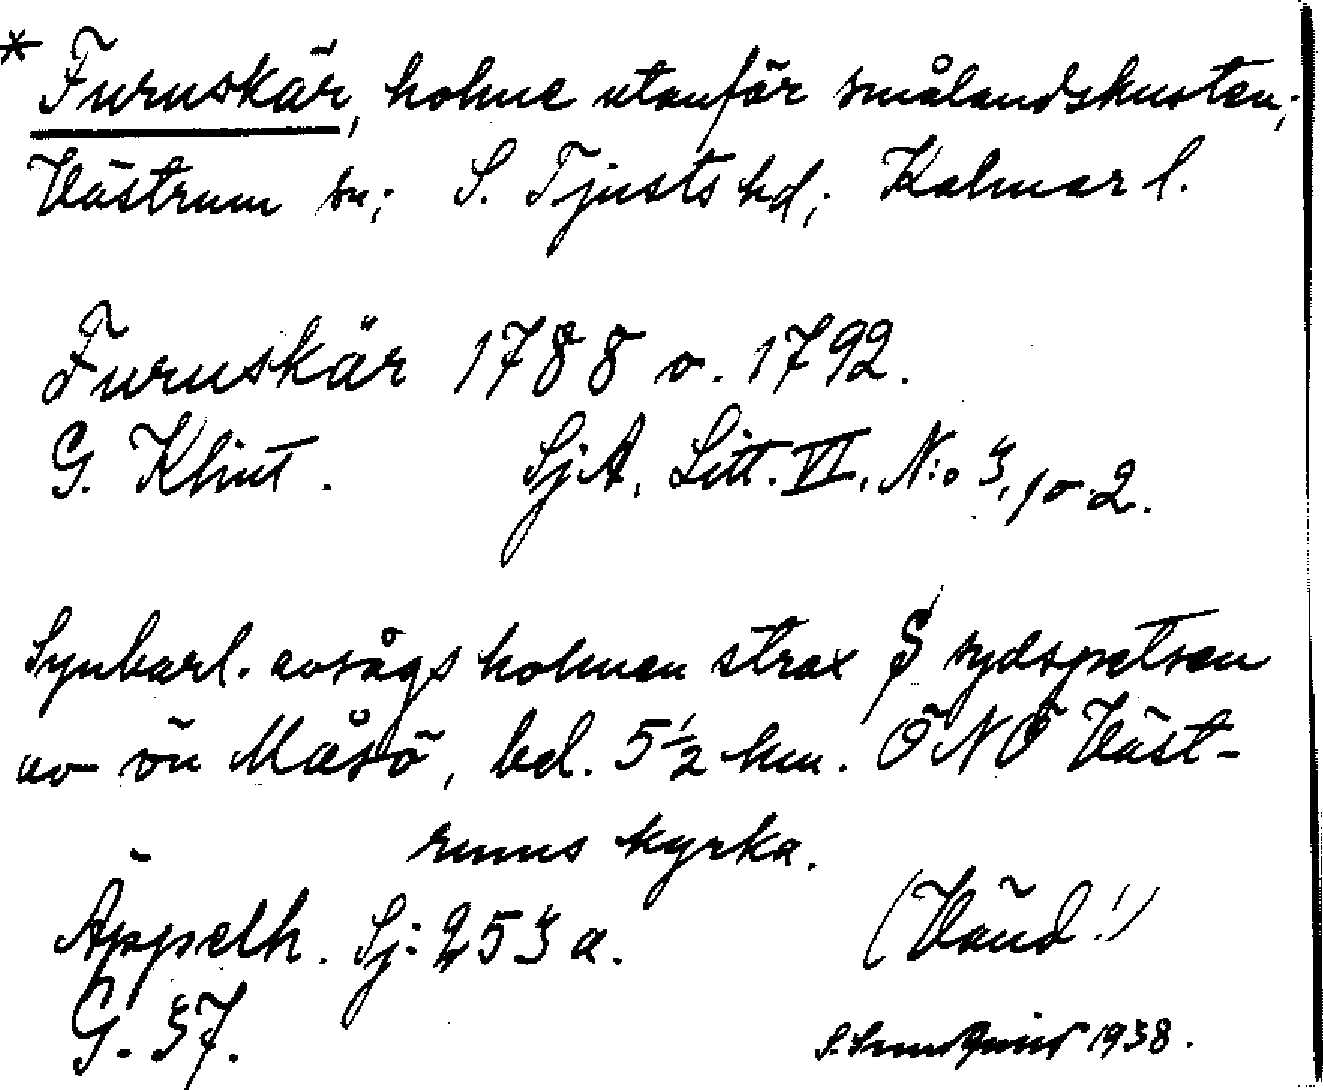 * Furuskär, holme utanför smålandskusten;
Västrum sn; S. Tjusts hd; Kalmar l.
Furuskär 1788 o. 1792.
G. Klint. SjA, Litt. VI, N:o 3, 1 o 2.
Synbarl. avsågs holmen strax S sydspetsen
av ön Måsö, bel. 5 1/2 km. ÖNÖ Väst-
rums kyrka.
Äppelh. Sj: 253 a. (Vänd!)
G. 37.
1938.